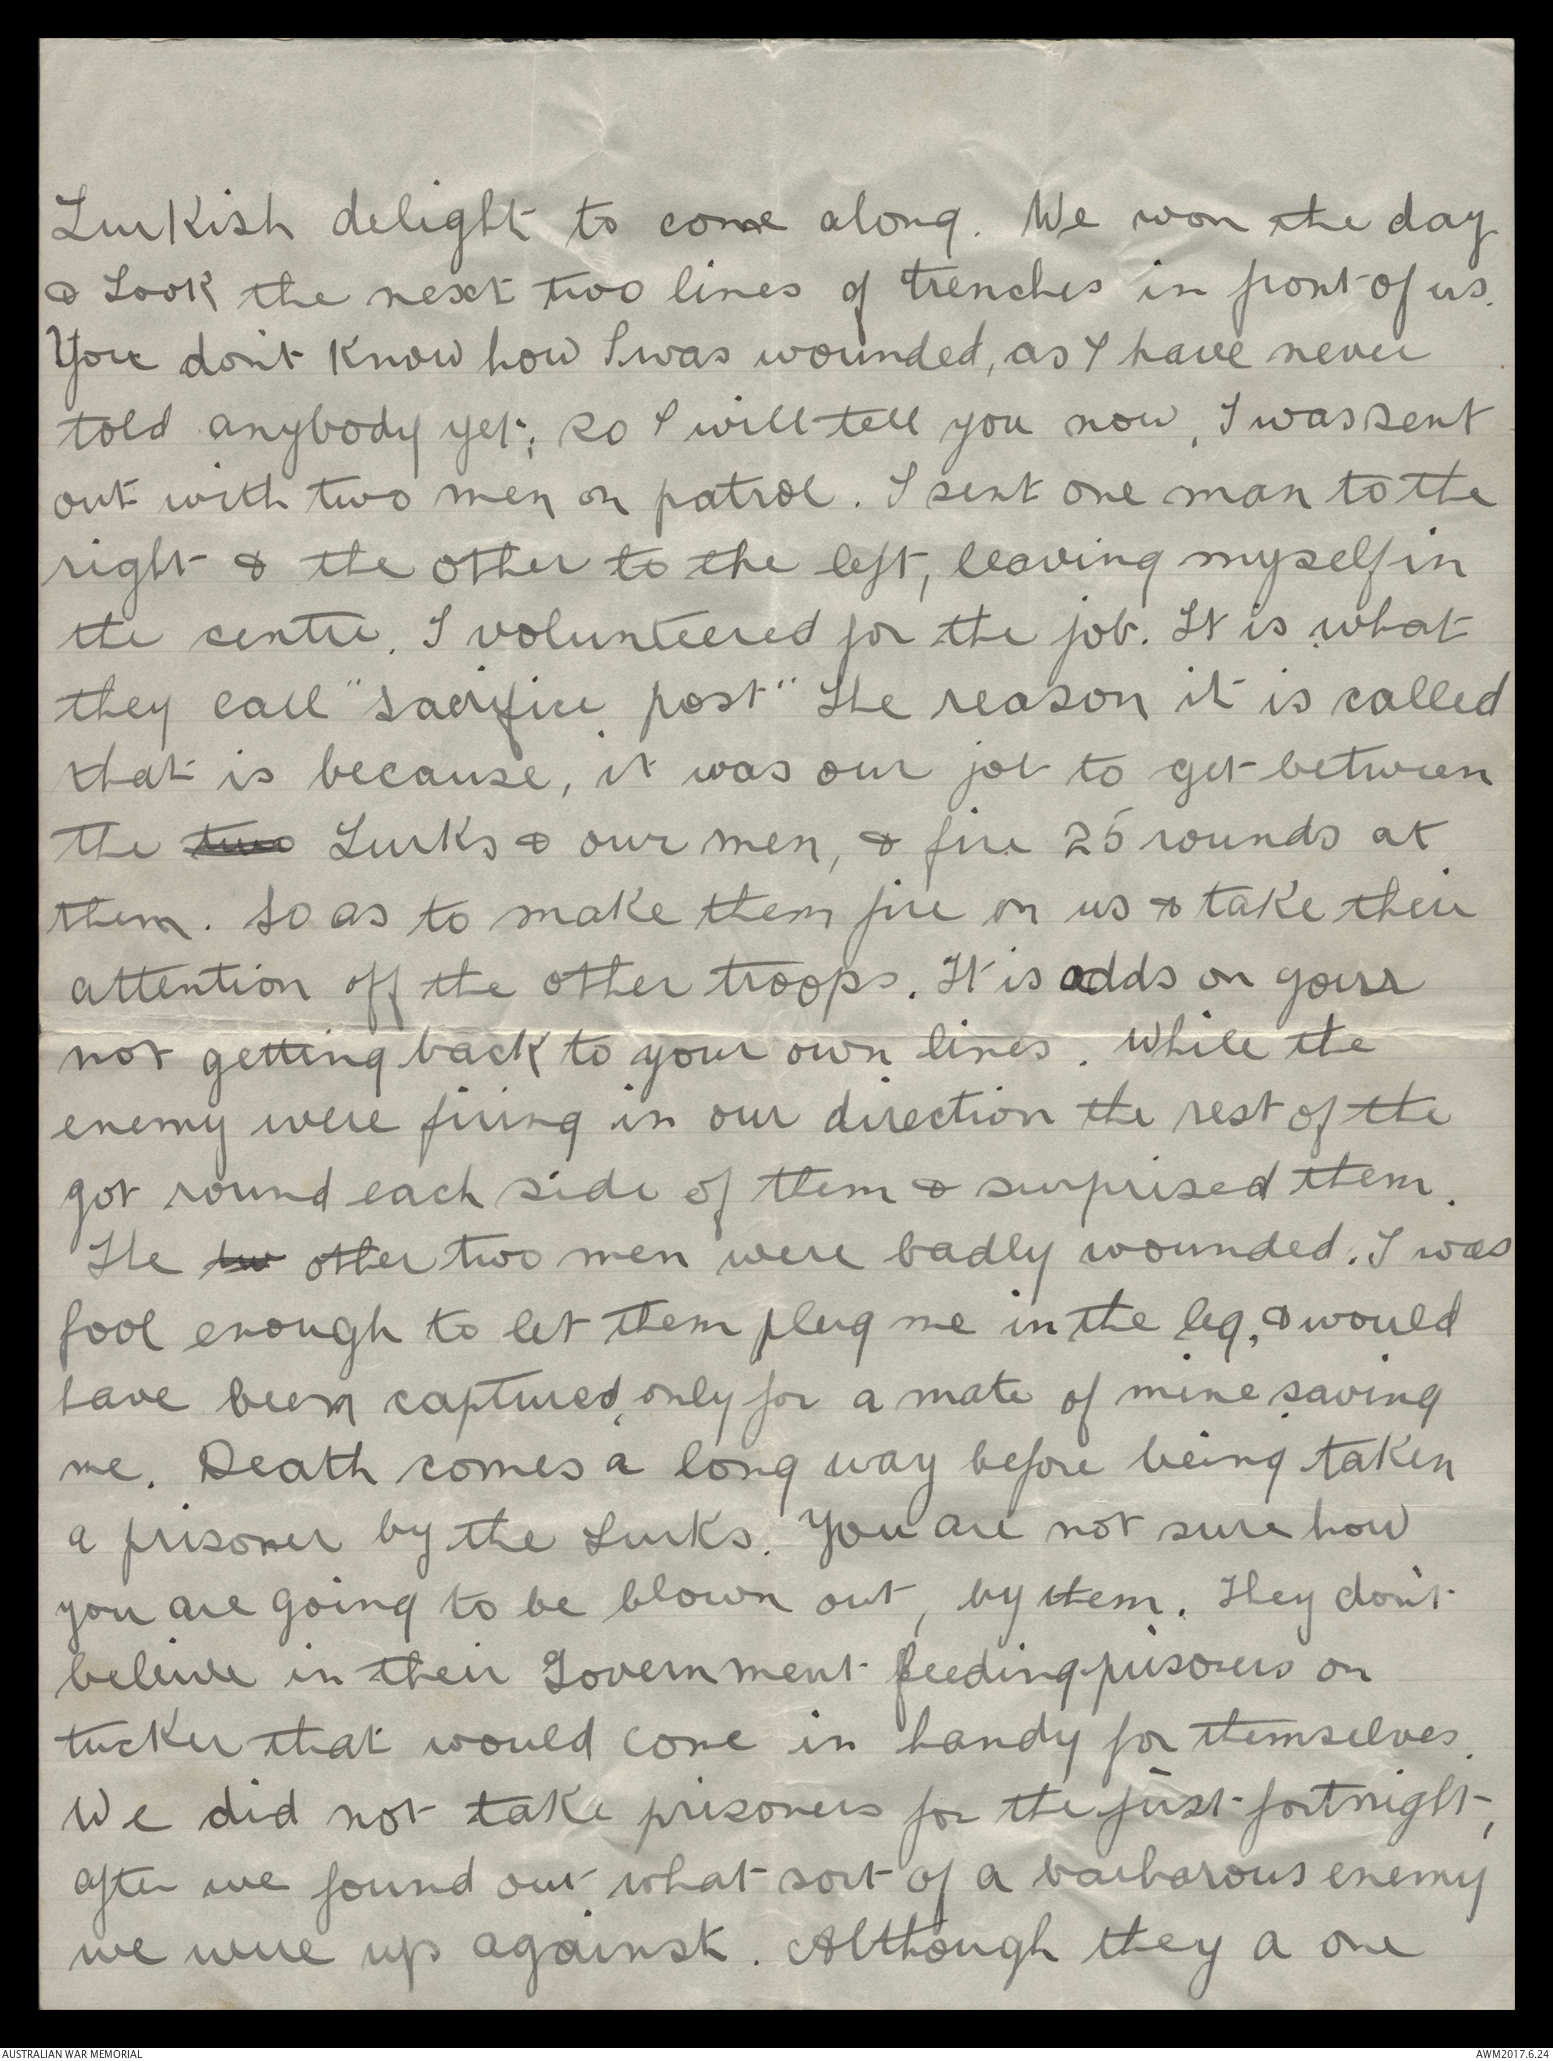 Turkish delight to come along. We won the day
& took the next two lines of trenches in front of us.
You don't know how I was wounded, as I have never
told anybody yet; so I will tell you now, I was sent
out with two men on patrol. I sent one man to the
right & the other to the left, leaving myself in
the centre. I volunteered for the job. It is what
they call "sacrifice post" The reason it is called
that is because, it was our job to get between
the two Turks & our men, & fire 25 rounds at
them. So as to make them fire on us & take their
attention off the other troops. It is odds on your
not getting back to your own lines. While the
enemy were firing in our direction the rest of the
got round each side of them & surprised them.
The tw other two men were badly wounded. I was
fool enough to let them plug me in the leg, & would
have been captured, only for a mate of mine saving
me. Death comes a long way before being taken
a prisoner by the Turks. You are not sure how
you are going to be blown out, by them. They don't
beleive in their Government feeding prisoners on
tucker that would come in handy for themselves.
We did not take prisoners for the first fortnight,
after we found out what sort of a barbarous enemy
we were up against. Although they a one
AUSTRALIAN WAR MEMORIAL
AWM2017.6.24